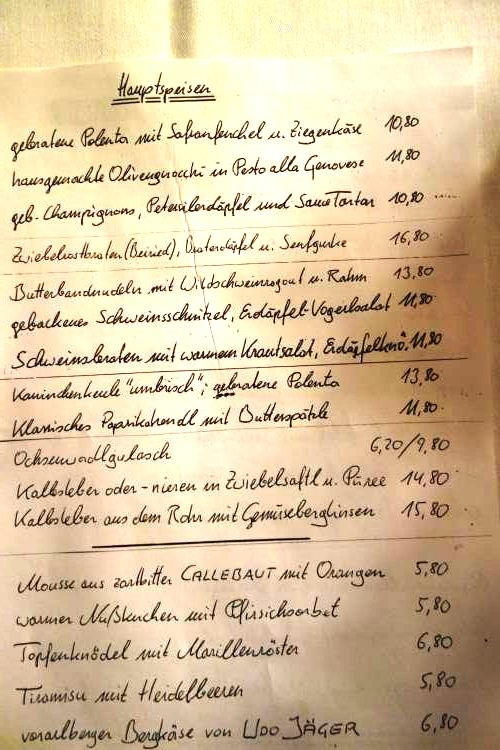 Hauptspeisen
gebratene Polenta mit Safranfenchel u. Ziegenkäse 10,80
hausgemachte Olivengnocchi in Pesto alla Genovese 11,80
geb. Champignons, Petersilerdäpfel und Sauce Tartar 10,80
Zwiebelrostbraten (Beiried), Braterdäpfel u. Senfgurke 16,80
Butterbandnudeln mit Wildschweinragout u. Rahm 13,80
gebackenes Schweinsschnitzel, Erdäpfel-Vogerlsalat 11,80
Schweinsbraten mit warmem Krautsalat, Erdäpfelknö. 11,80
Kaninchenkeule "umbrisch"; gebratene Polenta 13,80
Klassisches Paprikahendl mit Butterspätzle 11,80
Ochsenwadlgulasch 6,20/9,80
Kalbsleber oder -nieren in Zwiebelsaftl u. Püree 14,80
Kalbsleber aus dem Rohr mit Gemüseberglinsen 15,80
Mousse aus zartbitter CALLEBAUT mit Orangen 5,80
warmer Nußkuchen mit Pfirsichsorbet 5,80
Topfenknödel mit Marillenröster 6,80
Tiramisu mit Heidelbeeren 5,80
vorarlberger Bergkäse von UDO JÄGER 6,80